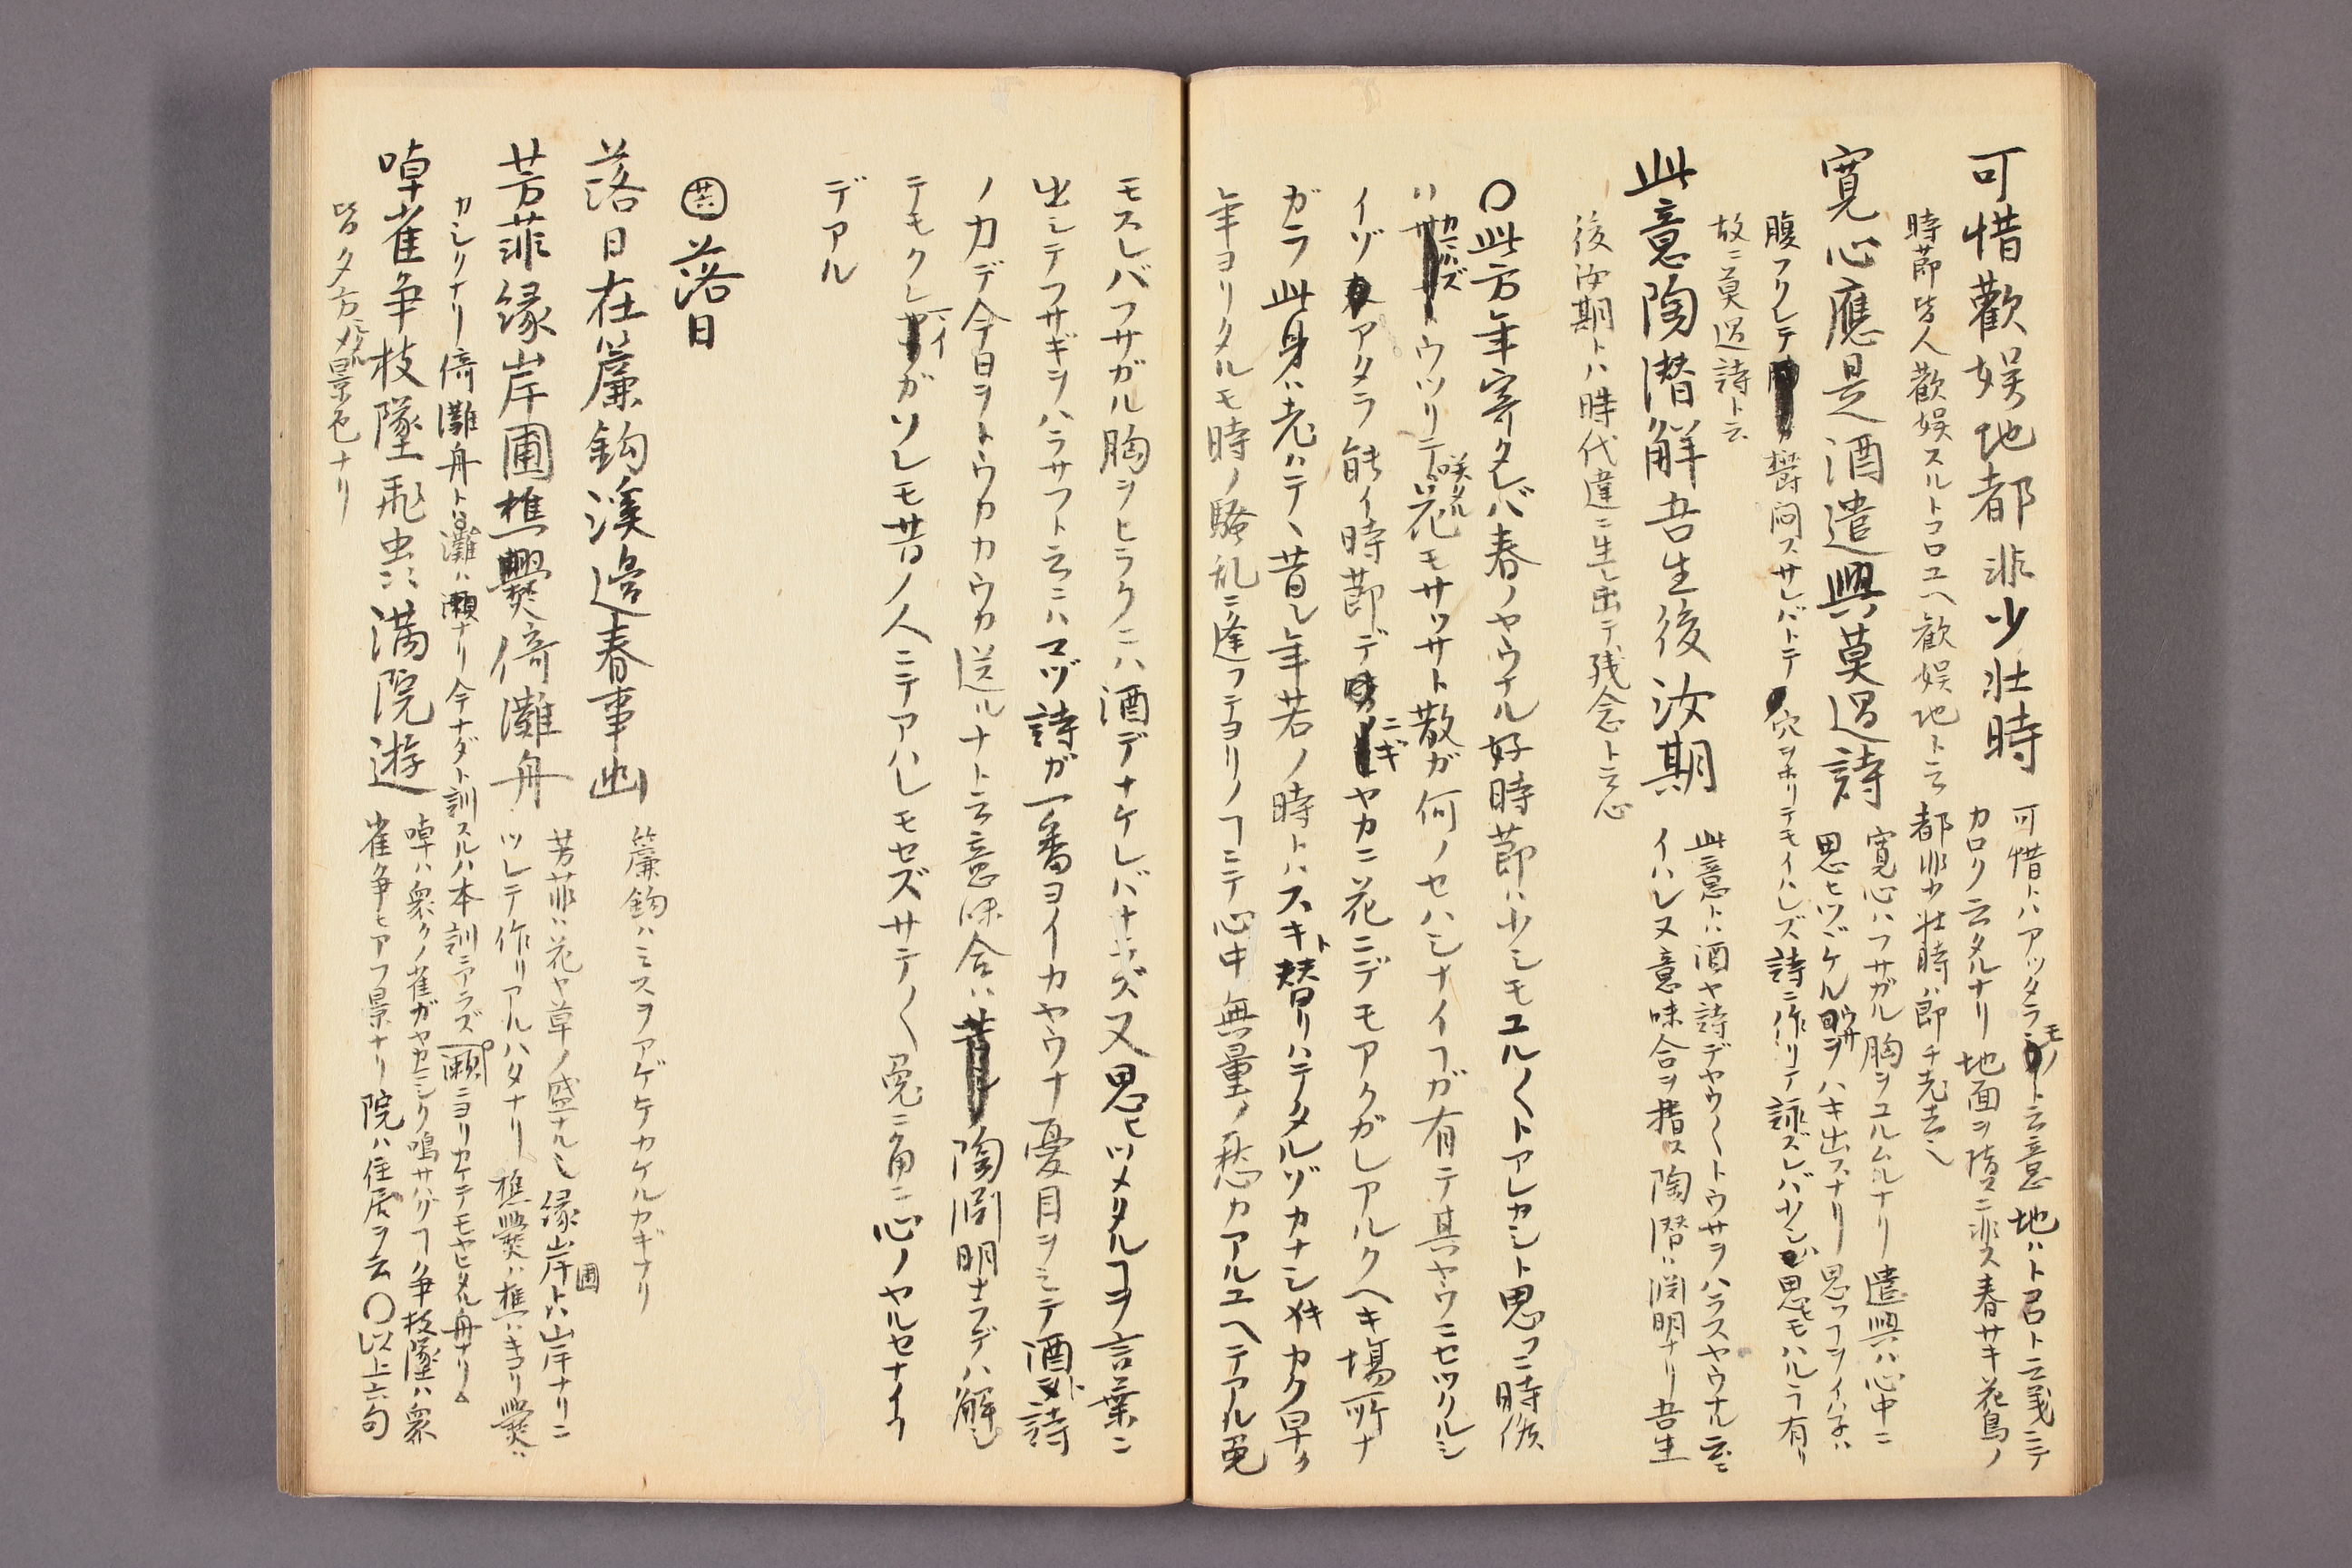 可惜歡娯地都非少壮時
可惜トハアッタラモノト云意地ハト君ト云義ニテ
カロク云タルナリ地面ヲ指ニ非ス春サキ花鳥ノ
時節皆人歡娯スルトコロユヘ歓娯地ト云都非少壮時節チ老去シ
寛心應是酒遣興莫過詩
寛心ハフサガル胸ヲユルムルナリ遣興ハ心中ニ
思ヒツヾケルヿヲハキ出スナリ思フヿヲイハネハ
腹フクレテ欝悶スサレバトテ穴ヲホリテモイハレズ詩ニ作リテ詠ズレバ少シ思モハルヽ有リ
故ニ莫過詩ト云
此意陶潜解吾生後汝期
此意トハ酒ヤ詩デヤウ〱トウサヲハラスヤウナル云ニ
イハレヌ意味合ヲ指ス陶潜ハ渕明ナリ吾生
後汝期トハ時代違ニ生レ出テ残念ト云心
〇此方年寄タレバ春ノヤウナル好時節ハ少シモユル〱トアレカシト思フニ時候
ハカニハズウツリテ咲タル花モサツサト散ガ何ノセハシナイヿガ有テ其ヤウニセツクルシ
イゾアタラ能イ時節デニギヤカニ花ニデモアクガレアルクヘキ場所ナ
ガラ此身ハ老ハテヽ昔シ年若ノ時トハスキト替リハテタルゾカナシキカク早ク
年ヨリタルモ時ノ騒乱ニ逢フテヨリノヿニテ心中無量ノ愁カアルユヘテアル兎
モスレバフサガル胸ヲヒラクニハ酒デナケレバナラズ又思ヒツメタルヿヲ言葉ニ
出シテフサギヲハラサフト云ニハマヅ詩ガ一番ヨイカヤウナ憂目ヲシテ酒ト詩
ノ力デ今日ヲトウカカウカ送ルナト云意味合ハ陶渕明ナラデハ解シ
テモクレイガソレモ昔ノ人ニテアハレモセズサテ〱兎ニ角ニ心ノヤルセナイヿ
デアル
落日
落日在簾鈎溪邉春事幽
簾鈎ハミスヲアゲケカケルカギナリ
芳菲縁岸圃樵爨倚灘舟
芳菲ハ花ヤ草ノ盛ナル也縁岸圃トハ山岸ナリニ
ツレテ作リアルハタナリ樵爨ハ樵ハキコリ爨ハ
カシクナリ倚灘舟トハ灘ハ瀬ナリ今ナダト訓スルハ本訓ニアラズ瀬ニヨリカケテモヤヒタル舟ナリ
啅雀争枝墜飛虫満院遊
啅ハ衆クノ雀ガヤカシク鳴サハグヿ争枝墜ハ衆
雀争ヒアフ景ナリ院ハ住居ヲ云〇以上六句
皆夕方ノ景色ナリ